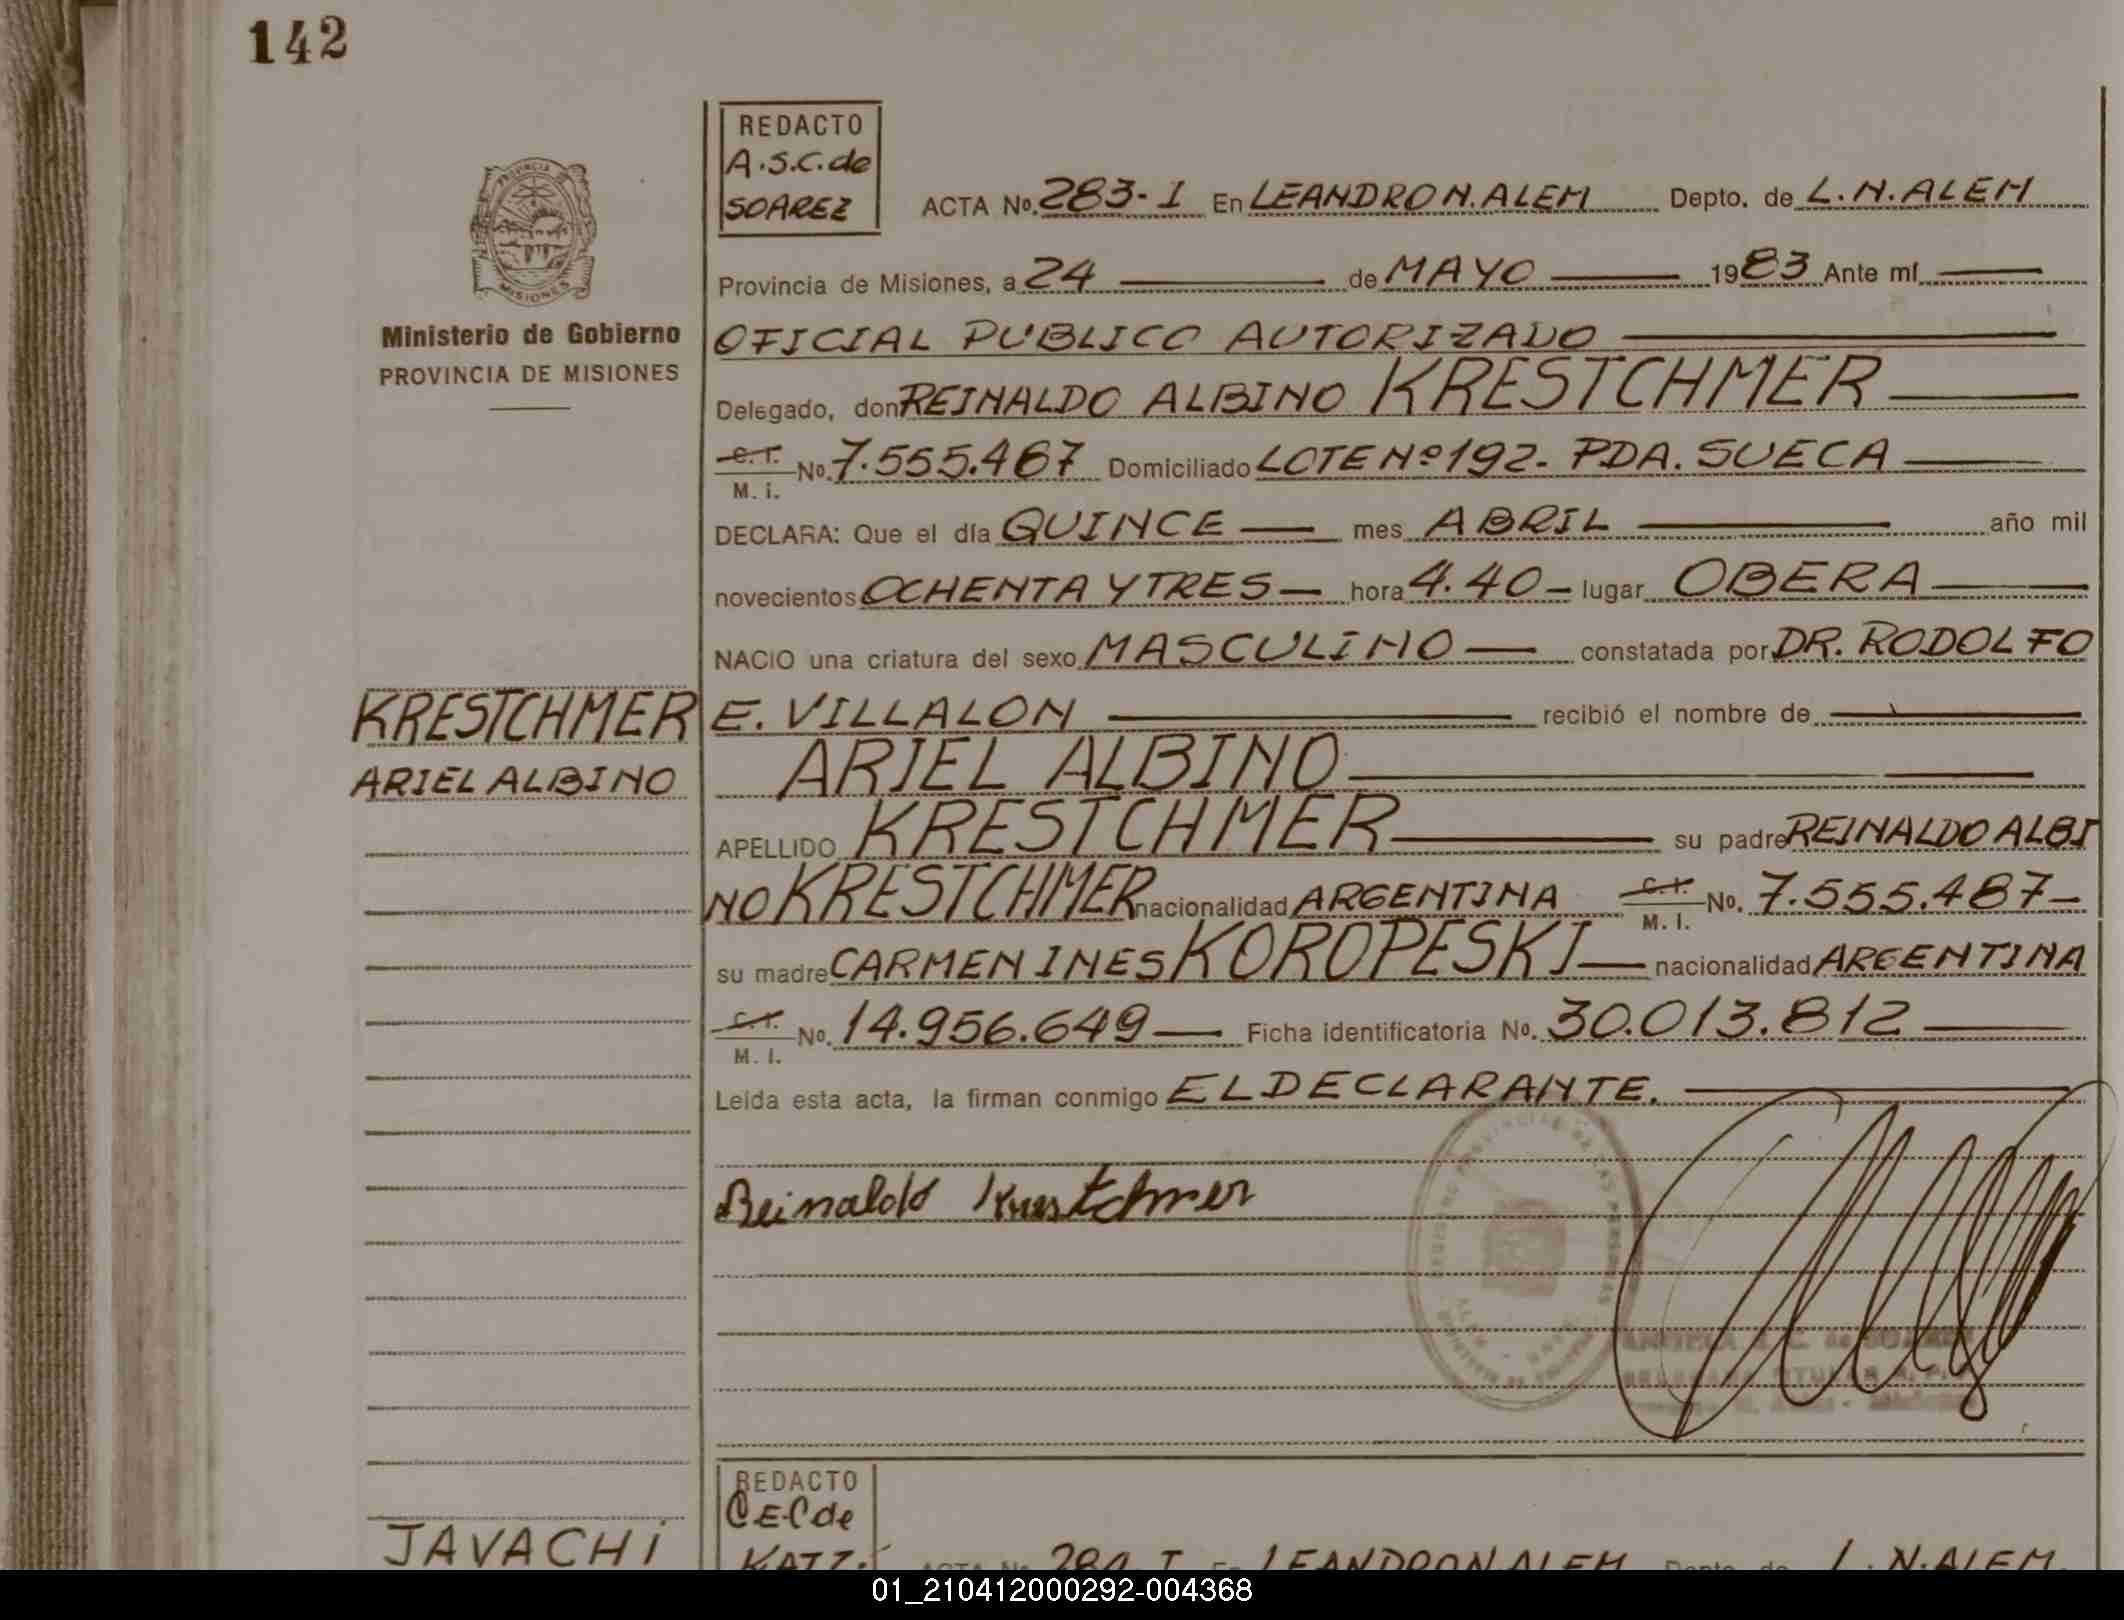 142
REDACTO
A.S.C. de
SOAREZ
ACTA No. 283-I En LEANDRO N. ALEM Depto. de L.N. ALEM
PROVINCIA DE
MISIONES
Ministerio de Gobierno
PROVINCIA DE MISIONES
Provincia de Misiones, a 24 de MAYO 1983 Ante mí
OFICIAL PUBLICO AUTORIZADO
Delegado, don REINALDO ALBINO KRESTCHMER
C.I. M.I. No. 7.555.467 Domiciliado LOTE Nº 192- PDA. SUECA
DECLARA: Que el día QUINCE mes ABRIL año mil
novecientos OCHENTA Y TRES hora 4.40 lugar OBERA
NACIO una criatura del sexo MASCULINO constatada por DR. RODOLFO
E. VILLALON recibió el nombre de
KRESTCHMER
ARIEL ALBINO
ARIEL ALBINO
APELLIDO KRESTCHMER su padre REINALDO ALBI
NO KRESTCHMER nacionalidad ARGENTINA C.I. M.I. No. 7.555.487-
su madre CARMEN INES KOROPESKI nacionalidad ARGENTINA
C.I. M.I. No. 14.956.649 Ficha identificatoria No. 30.013.812
Leída esta acta, la firman conmigo EL DECLARANTE.
Reinaldo Krestchmer
REDACTO
C.E.C de
KATZ.
JAVACHI
ACTA No. 284-I En LEANDRO N. ALEM Depto. de L. N. ALEM.
01_210412000292-004368